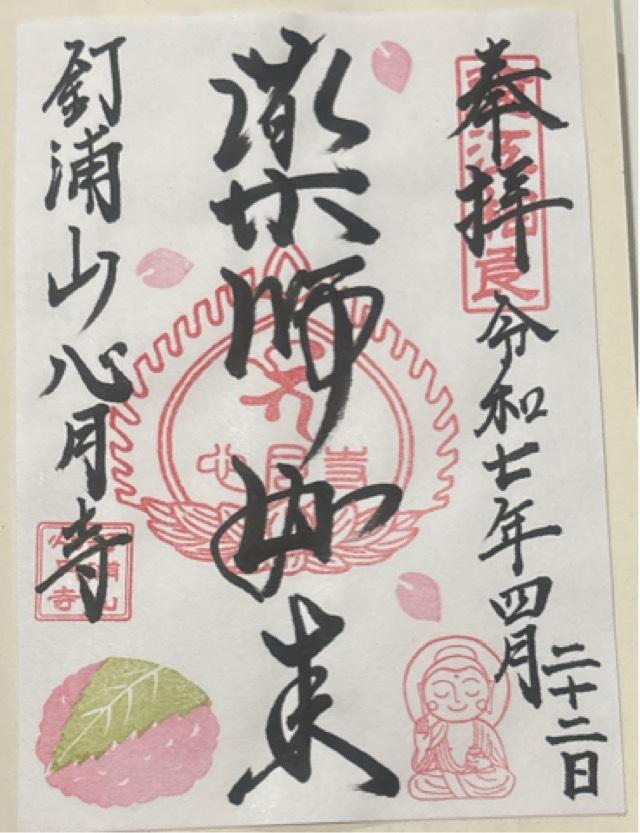 奉拝
令和七年四月二十二日
薬師如来
心月寺
釘浦山心月寺